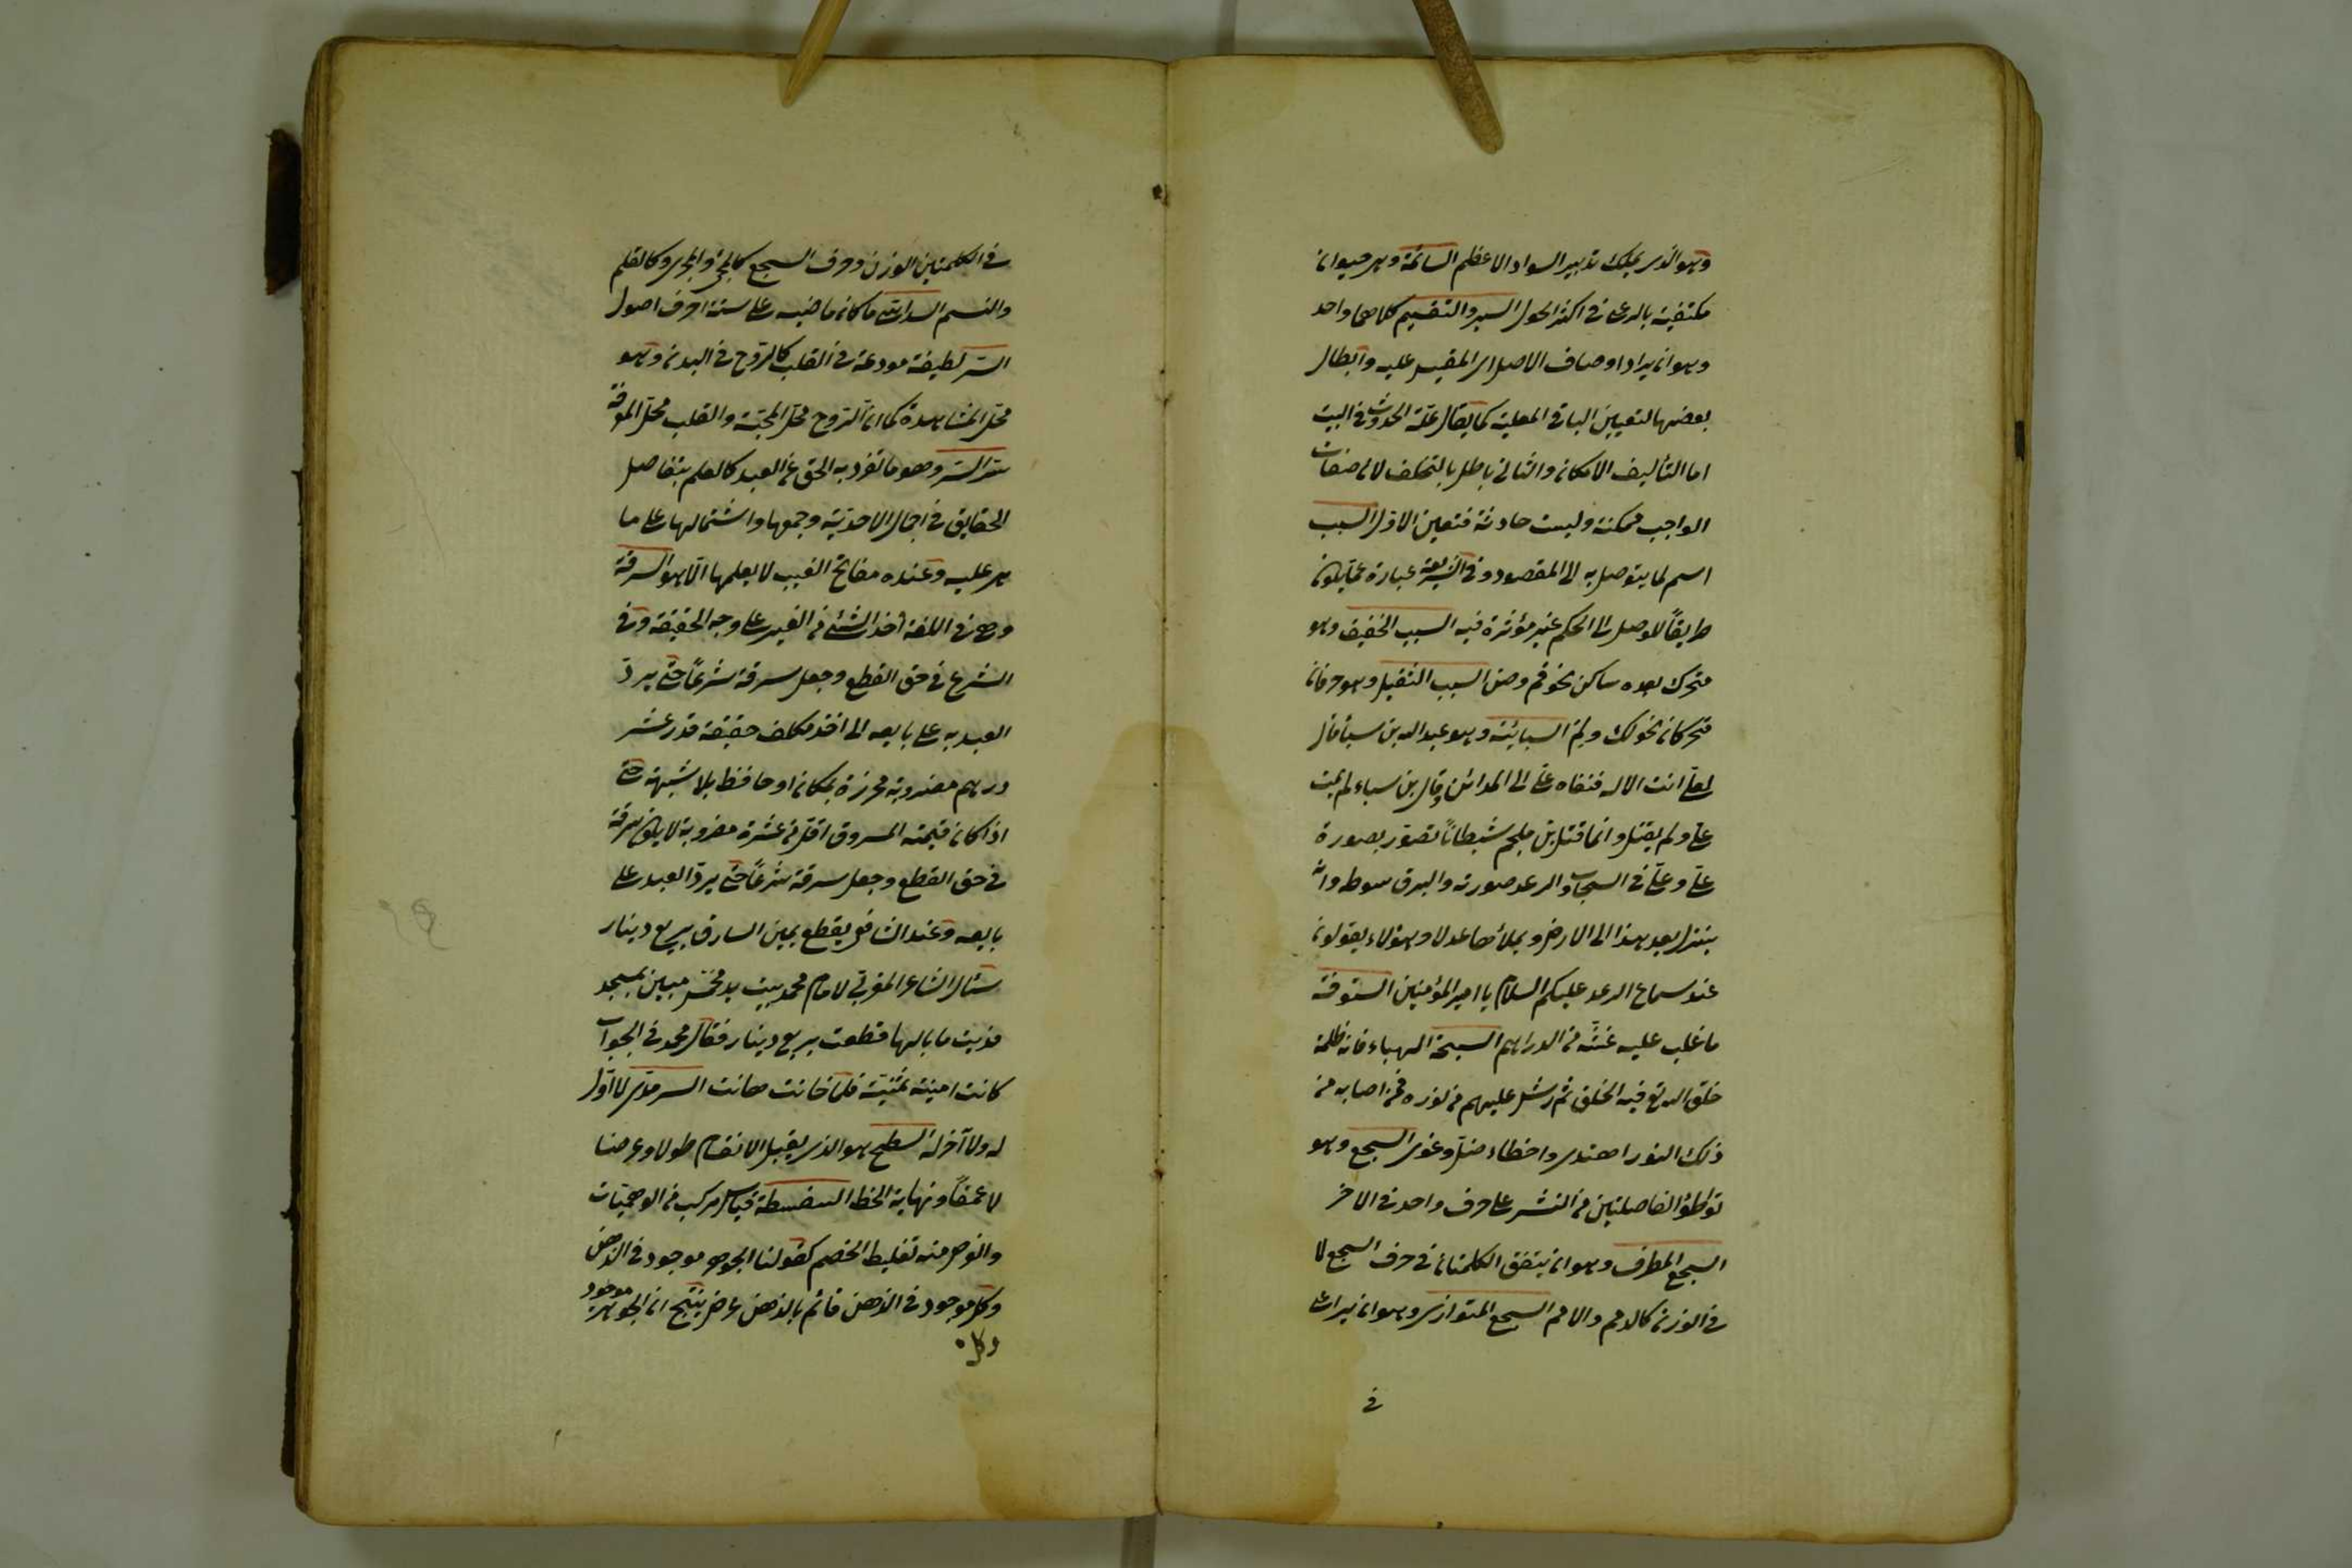 وهو الذى يملك تدبير السواد الاعظم السائمة وهى حيوان
مكتفية بالرعى فى اكثر الحول السبر والتقسيم كلاهما واحد
وهو ايراد اوصاف الاصل اى المقيس عليه وابطال
بعضها لتعيين الباقى للعلية كما يقال علة الحدوث فى البيت
اما التأليف الامكان والثانى باطل بالتخلف لان صفات
الواجب ممكنة وليست حادثة فتعين الاول السبب
اسم لما يتوصل به الى المقصود وفى الشريعة عبارة عما يكون
طريقاً للوصول الى الحكم غير مؤثرة فيه السبب الخفيف وهو
متحرك بعده ساكن نحو قم ومن السبب الثقيل وهو حرفان
متحركان نحو لك ولم السبائية وهو عبد الله بن سبأ قال
لعلى انت الاله فنفاه على الى المدائن وقال بن سباء لم يمت
على ولم يقتل وانما قتل بن ملجم شيطاناً تصور بصورة
على وعلى فى السحاب والرعد صوته والبرق سوطه وانه
ينزل بعد هذا الى الارض ويملأها عدلا وهؤلاء يقولون
عند سماع الرعد عليكم السلام يا امير المؤمنين الستوقة
ما غلب عليه غشه من الدراهم السبحة الهباء فانه ظلمة
خلق الله تع فيه الخلق ثم رش عليهم من نوره فمن اصابه من
ذلك النور اهتدى واخطاء ضل وغوى السجع وهو
تواطؤ الفاصلتين من النثر على حرف واحد فى الآخر
السجع المطرف وهو ان يتفق الكلمتان فى حرف السجع لا
فى الوزن كالرمم والامم السجع المتوازى وهو ان يراعى
فى
فى الكلمتين الوزن وحرف السجع كالمجرى والمجرى وكالقلم
والنسم السداسى ما كان ماضيه على ستة احرف اصول
السر لطيفة مودعة فى القلب كالروح فى البدن وهو
محل المشاهدة كما ان الروح محل المحبة والقلب محل المعرفة
سر السر وهو ما تفرد به الحق عن العبد كالعلم بتفاصيل
الحقايق فى اجمال الاحدية وجمعها واشتمالها على ما
هى عليه وعنده مفاتح الغيب لا يعلمها الا هو السرقة
وهى فى اللغة اخذ الشئ من الغير على وجه الخفية وفى
الشرع فى حق القطع وجعل سرقة شرعاً حتى يرد
العبد به على بايعه الى اخذ مكلف خفية قدر عشر
دراهم مضروبة محرزة بمكان او حافظ بلا شبهة حتى
اذا كان قيمته المسروق اقل من عشرة مضروبة لا يكون سرقة
فى حق القطع وجعل سرقة شرعاً حتى يرد العبد على
بايعه وعند الشافعى يقطع يمين السارق بربع دينار
سئال الشاعر المعرى لامام محمد بيت يد بخمس مئين عسجد
فديت ما بالها قطعت بربع دينار فقال محمد فى الجواب
كانت امينة ثمينة فلما خانت هانت السرمدى لا اول
له ولا آخر له السطح هو الذى يقبل الانقسام طولا وعرضا
لا عمقاً ونهايته الخط السفسطة قياس مركب من الوهميات
والغرض منه تغليط الخصم كقولنا الجوهر موجود فى الذهن
وكل موجود فى الذهن قائم بالذهن عرض ينتج ان الجوهر موجود
وكل